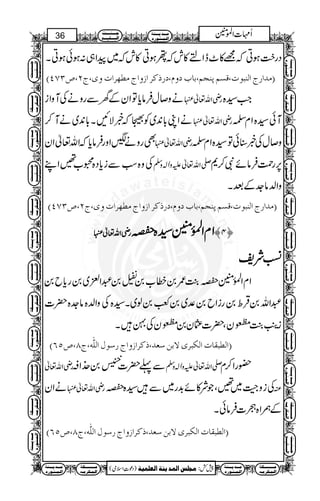 36
اُمہات المؤمنین
درخت ہوتی کہ مجھے کاٹ ڈالتے کاش کہ پتھر ہوتی کاش کہ میں پیدا ہی نہ ہوئی ہوتی۔
(مدارج النبوت،قسم پنجم،باب دوم،درذکر ازواج مطہرات وی،ج۲،ص۴۷۳)
جب سیدہ رضی اللہ تعالیٰ عنہا نے وصال فرمایا تو ان کے گھر سے رونے کی آواز
آئی سیدہ ام سلمہ رضی اللہ تعالیٰ عنہا نے اپنی باندی کو بھیجا کہ خبر لائیں۔ باندی نے آکر
وصال کی خبر سنائی تو سیدہ ام سلمہ رضی اللہ تعالیٰ عنہا بھی رونے لگیں اور فرمایا کہ اللہ تعالیٰ ان
پر رحمت فرمائے نبی کریم صلی اللہ تعالیٰ علیہ والہ وسلم کی وہ سب سے زیادہ محبوب تھیں اپنے
والد ماجد کے بعد۔
(مدارج النبوت،قسم پنجم،باب دوم،درذکر ازواج مطہرات وی،ج۲،ص۴۷۳)
﴿۴﴾ ام المؤمنین سیدہ حفصہ رضی اللہ تعالیٰ عنہا
نسب شریف
ام المؤمنین حفصہ بنت عمر بن خطاب بن نفیل بن عبدالعزی بن ریاح بن
عبداللہ بن قرط بن رزاح بن عدی بن کعب بن لوی۔ سیدہ کی والدہ ماجدہ حضرت
زینب بنت مظعون، حضرت عثمان بن مظعون کی بہن ہیں۔
(الطبقات الکبری لابن سعد،ذکرازواج رسول اللہ،ج۸،ص۶۵)
حضور اکرم صلی اللہ تعالیٰ علیہ والہ وسلم سے پہلے حضرت خنیس بن حذافہ رضی اللہ تعالیٰ
عنہ کی زوجیت میں تھیں، جو شرکائے بدر میں سے ہیں سیدہ حفصہ رضی اللہ تعالیٰ عنہا نے ان
کے ہمراہ ہجرت فرمائی۔
(الطبقات الکبری لابن سعد،ذکرازواج رسول اللہ،ج۸،ص۶۵)
پیش کش: مجلس المدینۃ العلمیۃ (دعوت اسلامی)